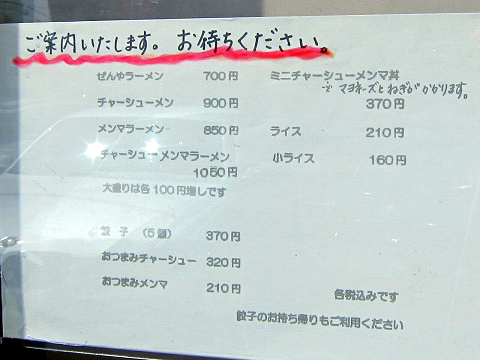 ご案内いたします。お待ちください。
ぜんやラーメン 700円
チャーシューメン 900円
メンマラーメン 850円
チャーシューメンマラーメン
1050円
大盛りは各100円増しです
餃子 (5個) 370円
おつまみチャーシュー 320円
おつまみメンマ 210円
ミニチャーシューメンマ丼
※マヨネーズとねぎがかかります。
370円
ライス 210円
小ライス 160円
各税込みです
餃子のお持ち帰りもご利用ください